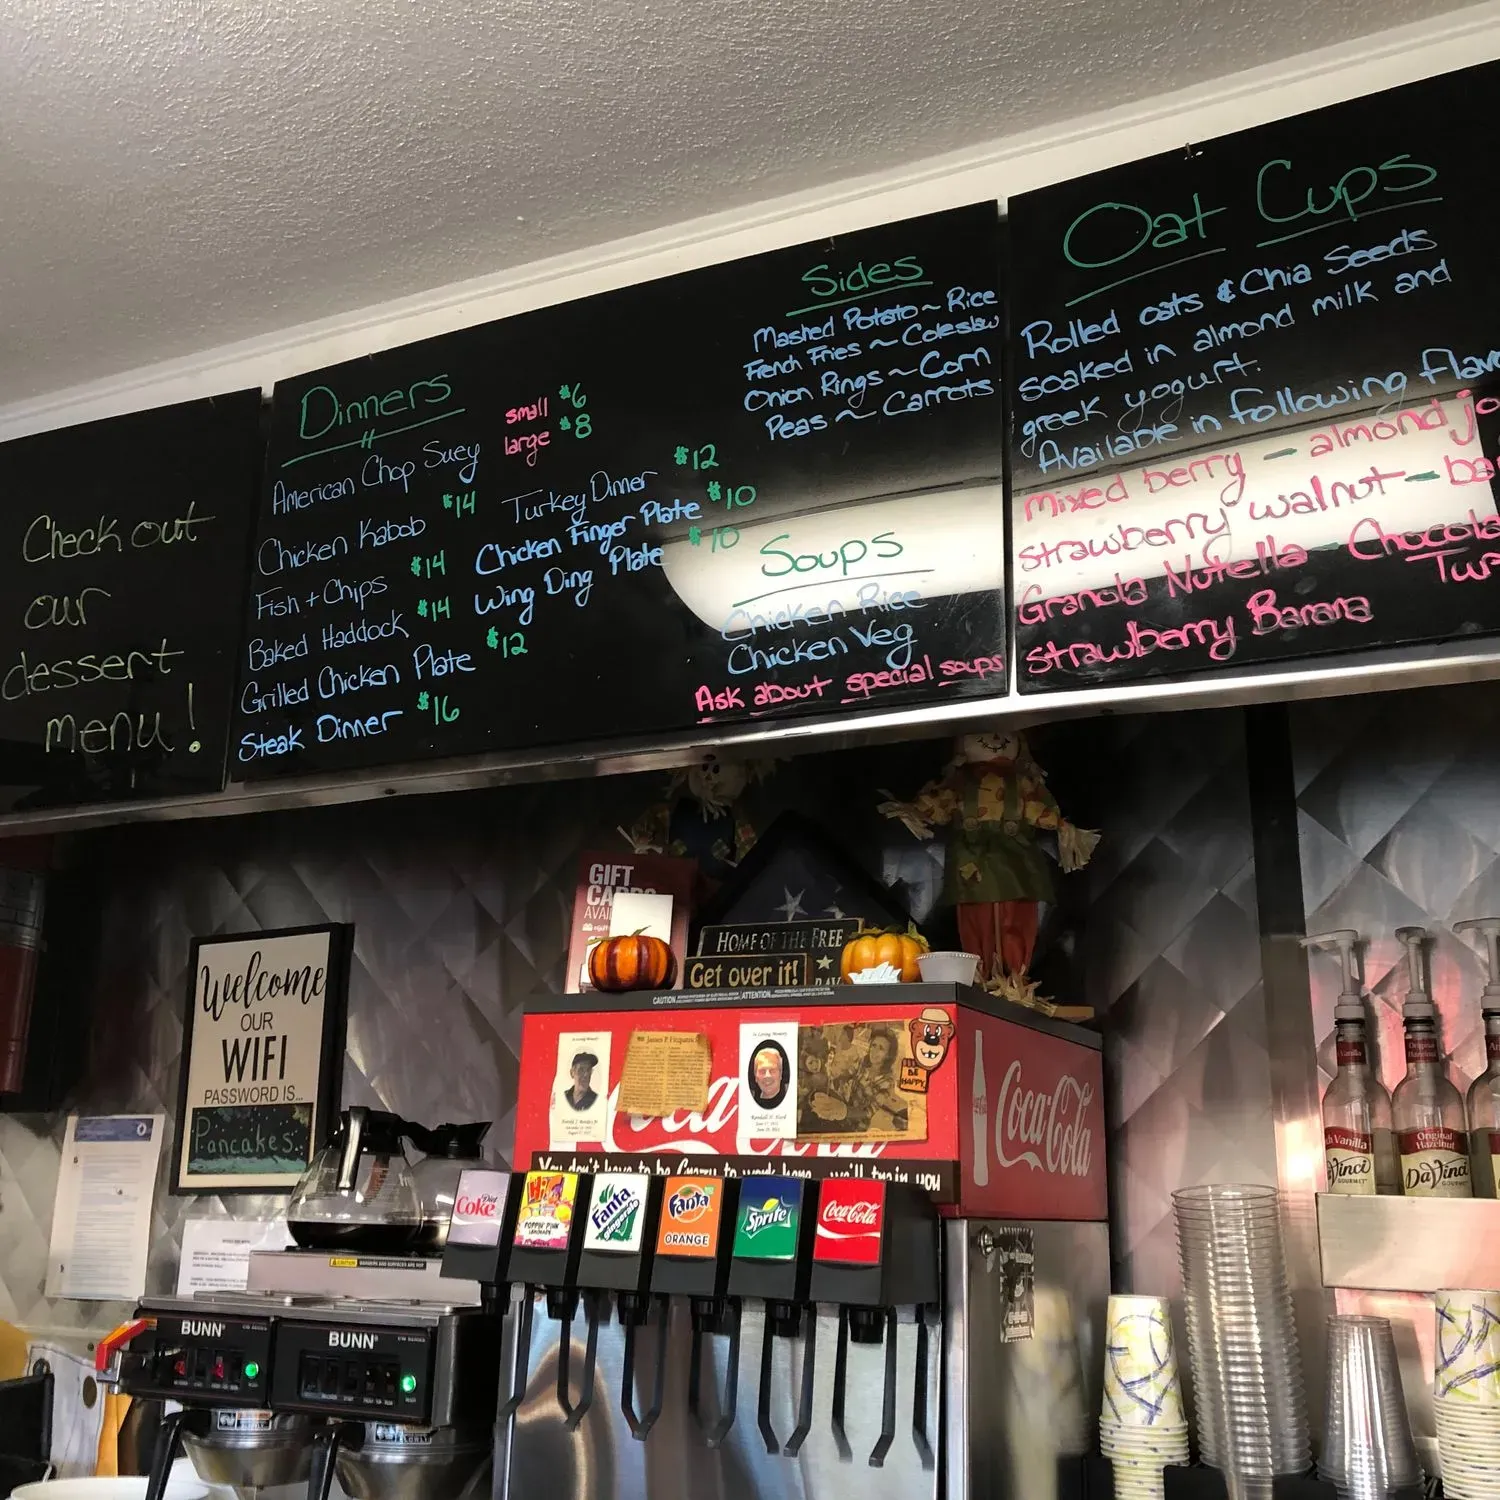 Check out
our
dessert
menu!
Dinners
American Chop Suey
small $6
large $8
Chicken Kabob $14
Fish + Chips $14
Baked Haddock $14
Grilled Chicken Plate $12
Steak Dinner $16
Turkey Dinner $12
Chicken Finger Plate $10
Wing Ding Plate $10
Sides
Mashed Potato ~ Rice
French Fries ~ Coleslaw
Onion Rings ~ Corn
Peas ~ Carrots
Soups
Chicken Rice
Chicken Veg
Ask about special soups
Oat Cups
Rolled oats & Chia Seeds
soaked in almond milk and
greek yogurt.
Available in following
mixed berry - almond
strawberry walnut -
Granola Nutella -
strawberry Banana
GIFT
HOME OF THE FREE
Get over it!
Welcome
OUR
WIFI
PASSWORD IS...
Pancakes..
CAUTION
ATTENTION
In Loving Memory
James P. Fitzpatrick
In Loving Memory
BE
HAPPY
Coca-Cola
Coca-Cola
You don't have to be Crazy to work here we'll train you
Diet
Coke
Hi-C
POPPIN' PINK
LEMONADE
Fanta
gingerale
Fanta
ORANGE
Sprite
Coca-Cola
CAUTION
BUNN
BUNN
Vanilla
DaVinci
GOURMET
Original
Hazelnut
Original
Hazelnut
DaVinci
GOURMET